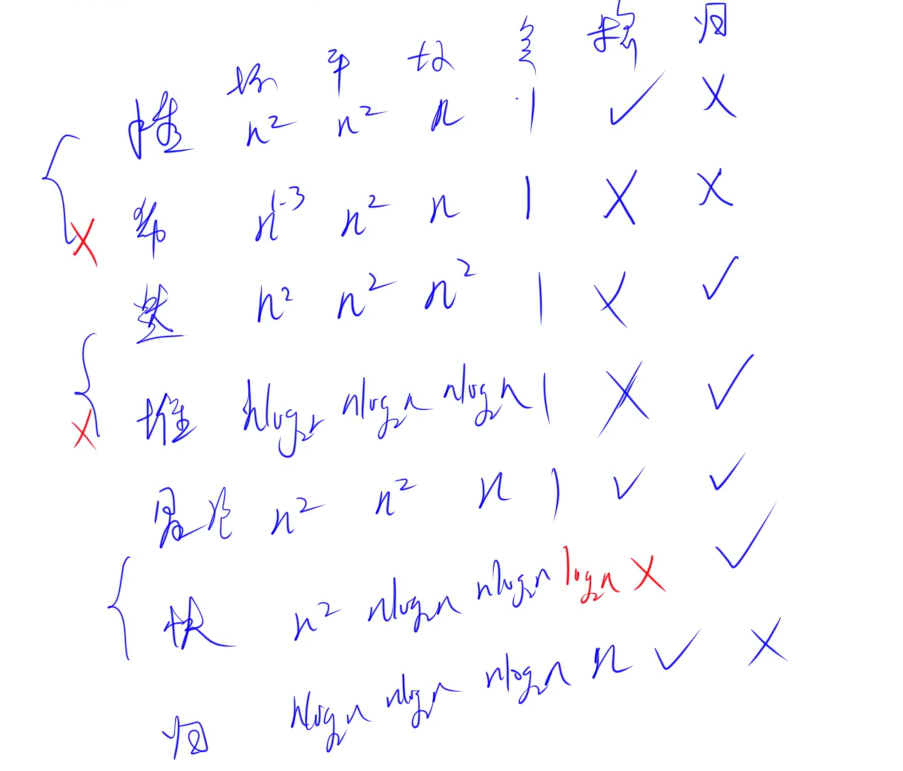 坏 平 好 空 稳 归
插 n² n² n 1 ✓ X
X 希 n^{1-3} n² n 1 X X
n² n² n² 1 X ✓
X 堆 nlog₂n nlog₂n nlog₂n 1 X ✓
冒泡 n² n² n 1 ✓ ✓
快 n² nlog₂n nlog₂n log₂n X ✓
归 nlog₂n nlog₂n nlog₂n n ✓ X